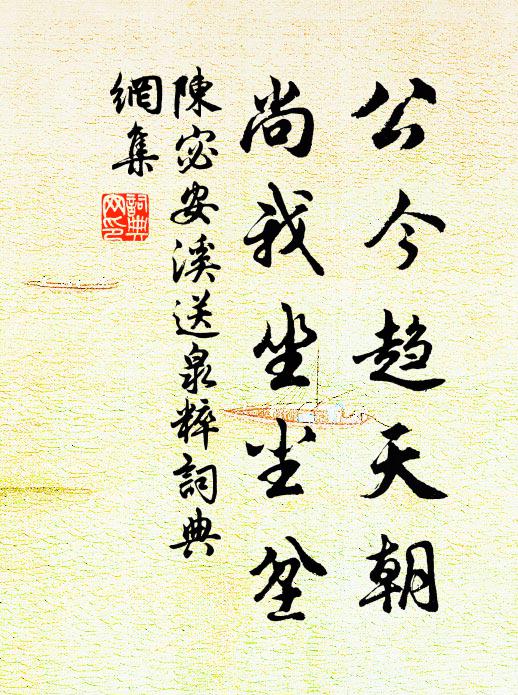 公今趋天朝
尚我坐尘坌
陳宓安溪送泉粹詞典
網集
詞典网印